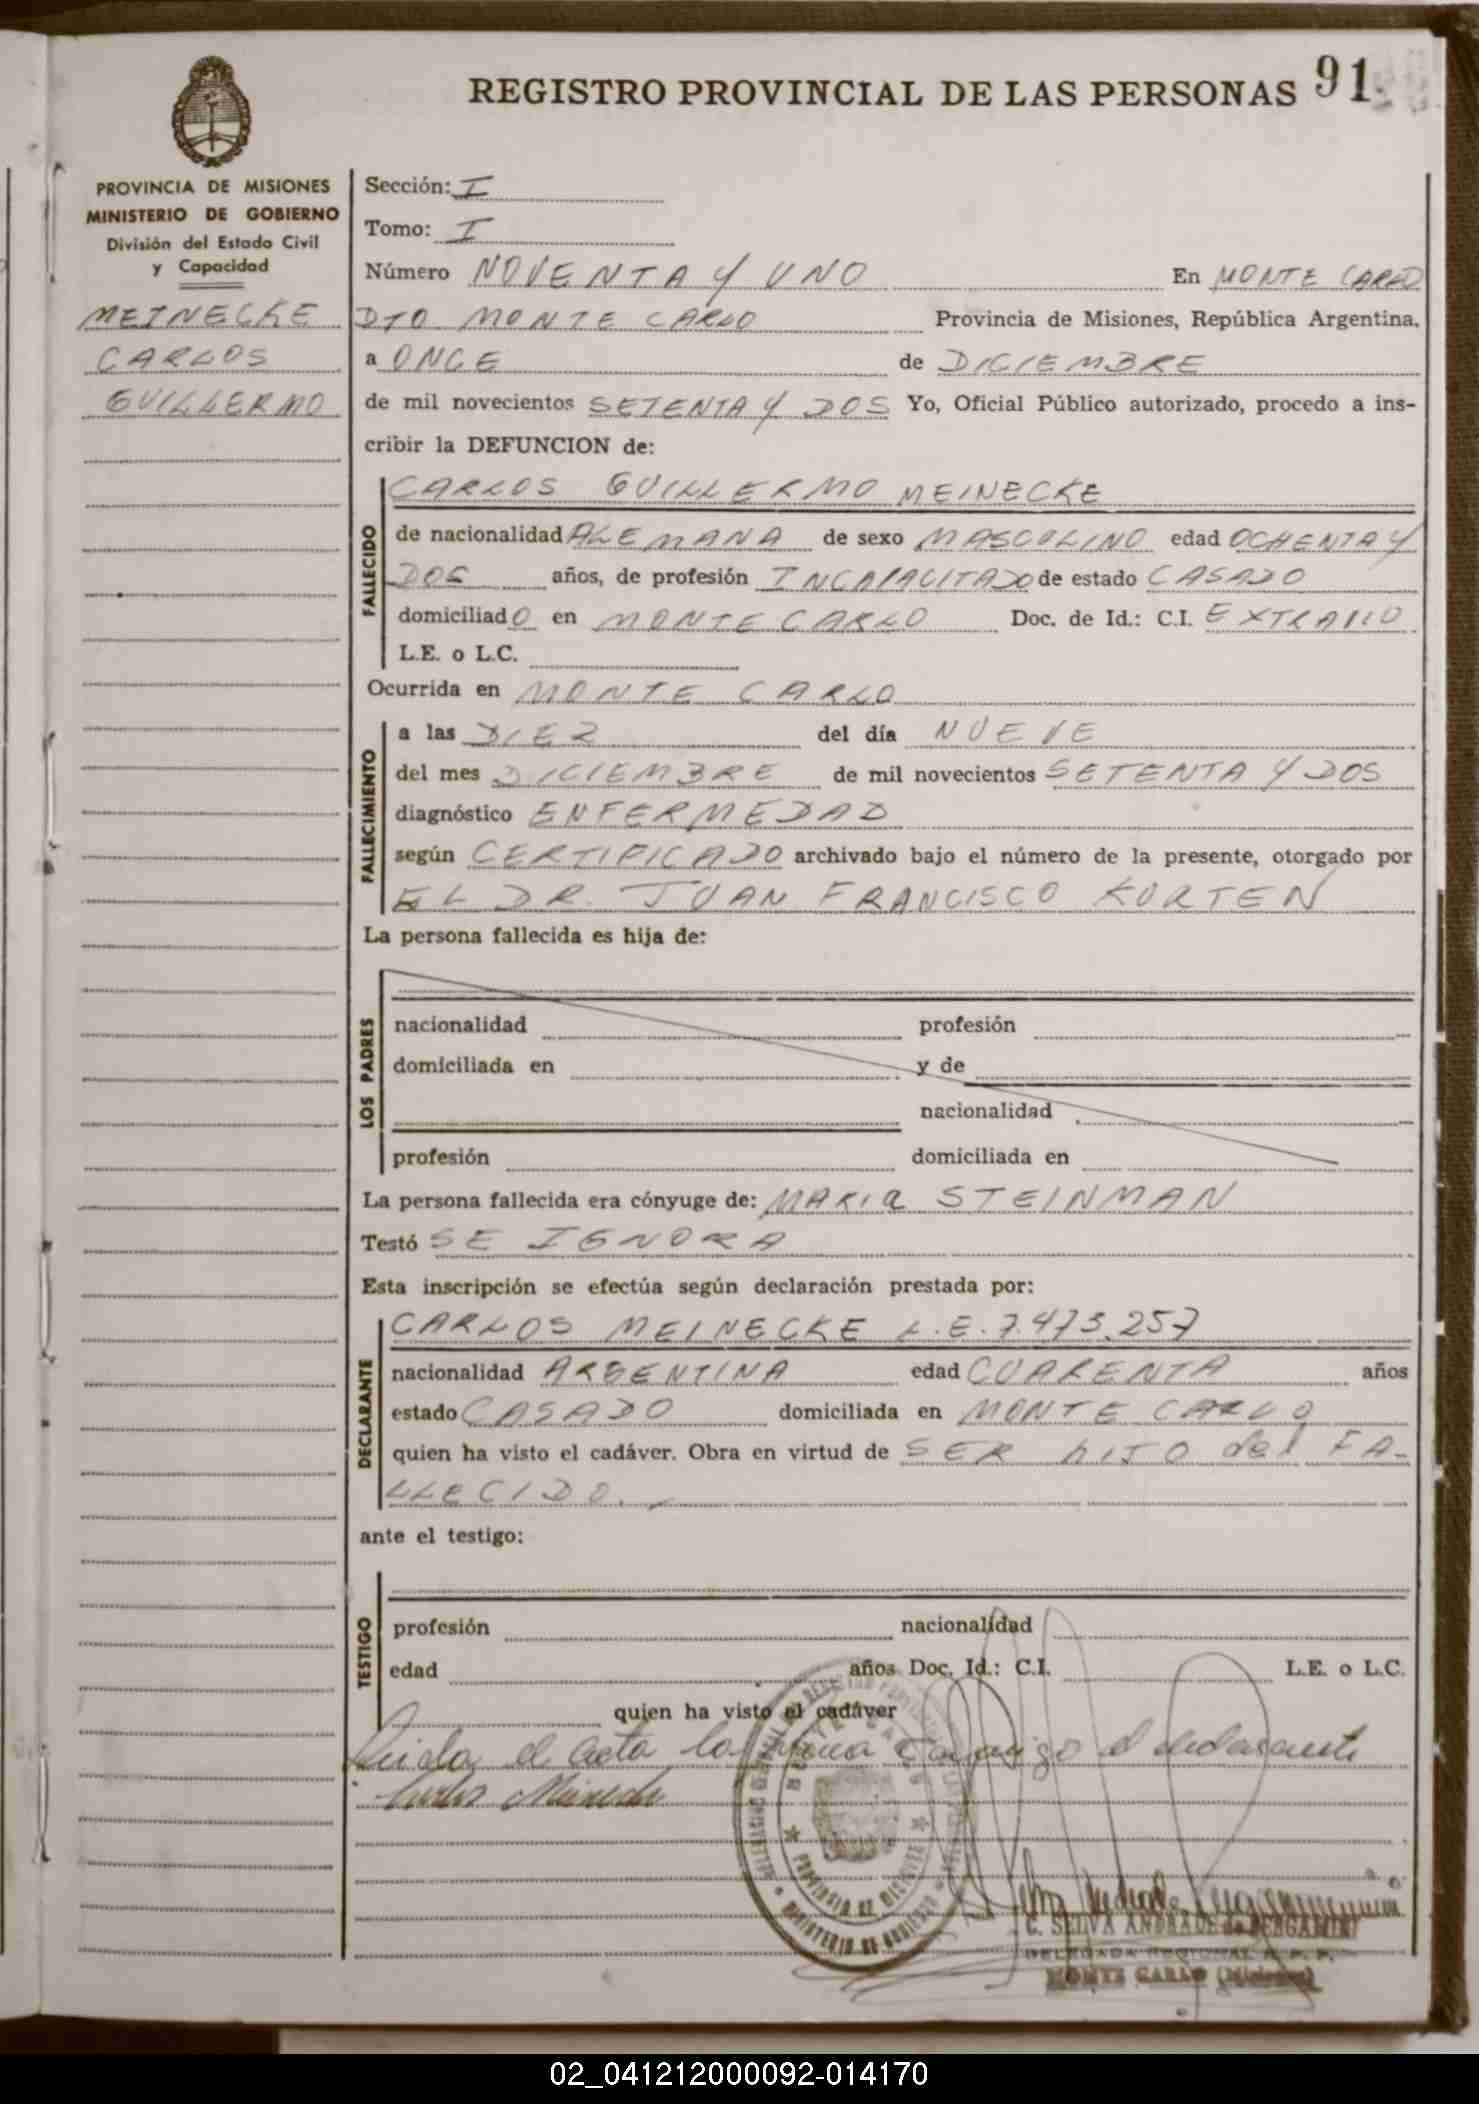 REGISTRO PROVINCIAL DE LAS PERSONAS 91
PROVINCIA DE MISIONES
MINISTERIO DE GOBIERNO
División del Estado Civil
y Capacidad
MEINECKE
CARLOS
GUILLERMO
Sección: I
Tomo: I
Número NOVENTA Y UNO En MONTE CARLO
DTO MONTE CARLO Provincia de Misiones, República Argentina,
a ONCE de DICIEMBRE
de mil novecientos SETENTA Y DOS Yo, Oficial Público autorizado, procedo a ins-
cribir la DEFUNCION de:
CARLOS GUILLERMO MEINECKE
FALLECIDO
de nacionalidad ALEMANA de sexo MASCULINO edad OCHENTA Y
DOS años, de profesión INCAPACITADO de estado CASADO
domiciliado en MONTE CARLO Doc. de Id.: C.I.
L.E. o L.C.
Ocurrida en MONTE CARLO
FALLECIMIENTO
a las DIEZ del día NUEVE
del mes DICIEMBRE de mil novecientos SETENTA Y DOS
diagnóstico ENFERMEDAD
según CERTIFICADO archivado bajo el número de la presente, otorgado por
EL DR. JUAN FRANCISCO KORTEN
La persona fallecida es hija de:
LOS PADRES
nacionalidad profesión
domiciliada en y de
nacionalidad
profesión domiciliada en
La persona fallecida era cónyuge de: MARIA STEINMAN
Testó SE IGNORA
Esta inscripción se efectúa según declaración prestada por:
CARLOS MEINECKE L.E. 7.473.257
DECLARANTE
nacionalidad ARGENTINA edad CUARENTA años
estado CASADO domiciliada en MONTE CARLO
quien ha visto el cadáver. Obra en virtud de SER hIJO del FA-
LLECIDO.
ante el testigo:
TESTIGO
profesión nacionalidad
edad años Doc. Id.: C.I. L.E. o L.C.
quien ha visto el cadáver
Leida el acta la firma conmigo el declarante
Carlos Meinecke
MONTE CARLO
PROVINCIA DE MISIONES
MINISTERIO DE GOBIERNO
C. SELVA ANDRADE de BERGAMINI
DELEGADA REGIONAL R. P. P.
MONTE CARLO (Misiones)
02_041212000092-014170